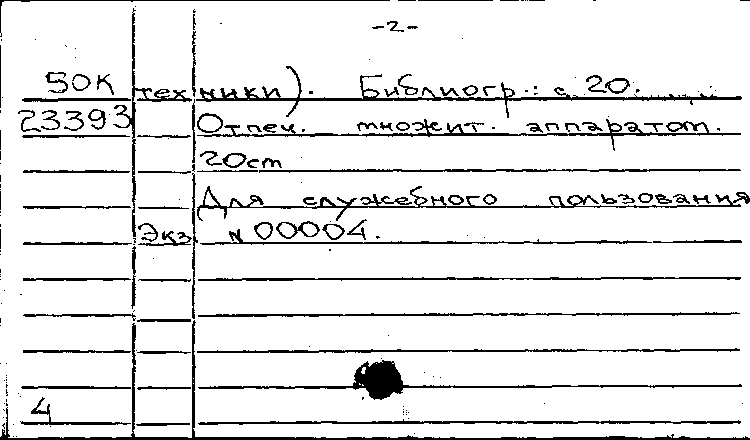 -2-
50К техники). Библиогр.: с 20.
23393 Отпеч. множит. аппаратом.
20cm
Для служебного пользования
Экз. N 00004.
4